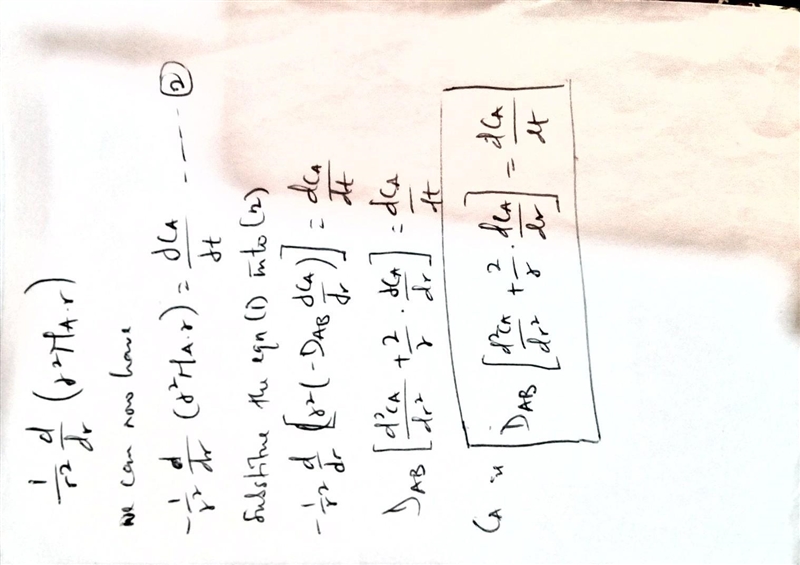 1/r² d/dr (r² NA.r)
we can now have
-1/r² d/dr (r² NA.r) = dCA/dt ---- ②
Substitute the eqn (1) into (2)
-1/r² d/dr [r² (-DAB dCA/dr)] = dCA/dt
DAB [d²CA/dr² + 2/r . dCA/dr] = dCA/dt
CA is DAB [d²CA/dr² + 2/r . dCA/dr] = dCA/dt